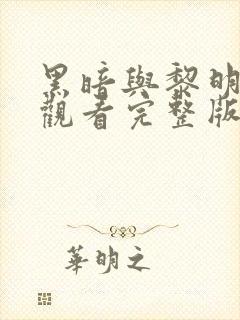 黑暗與黎明
觀看完整版
華明之